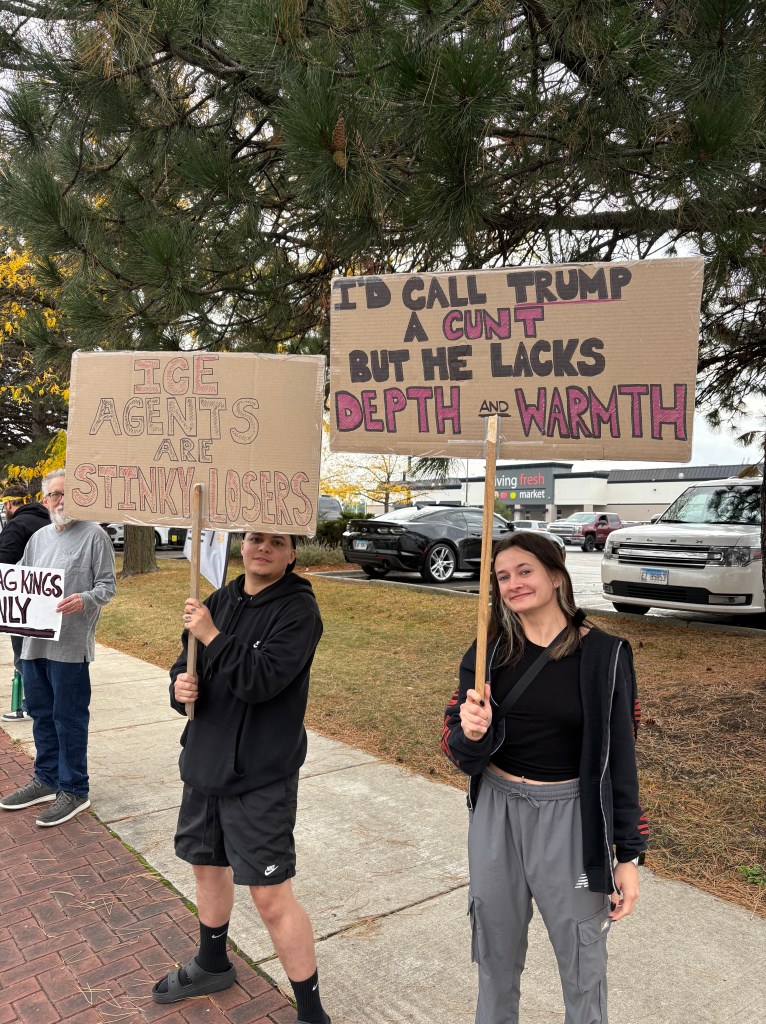 I'D CALL TRUMP
A CUNT
BUT HE LACKS
DEPTH AND WARMTH
ICE
AGENTS
ARE
STINKY LOSERS
AG KINGS
NLY
ving fresh
market